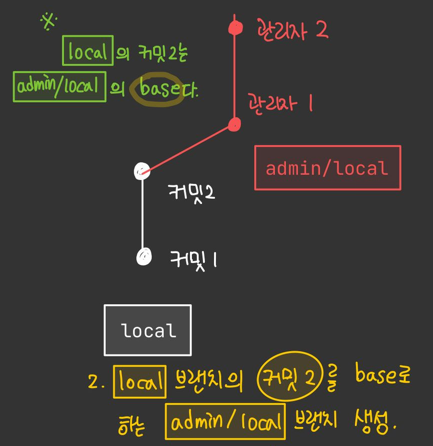 ※
local의 커밋2는
admin/local의 base다.
관리자 2
관리자 1
admin/local
커밋2
커밋1
local
2. local 브랜치의 커밋 2를 base로
하는 admin/local 브랜치 생성.